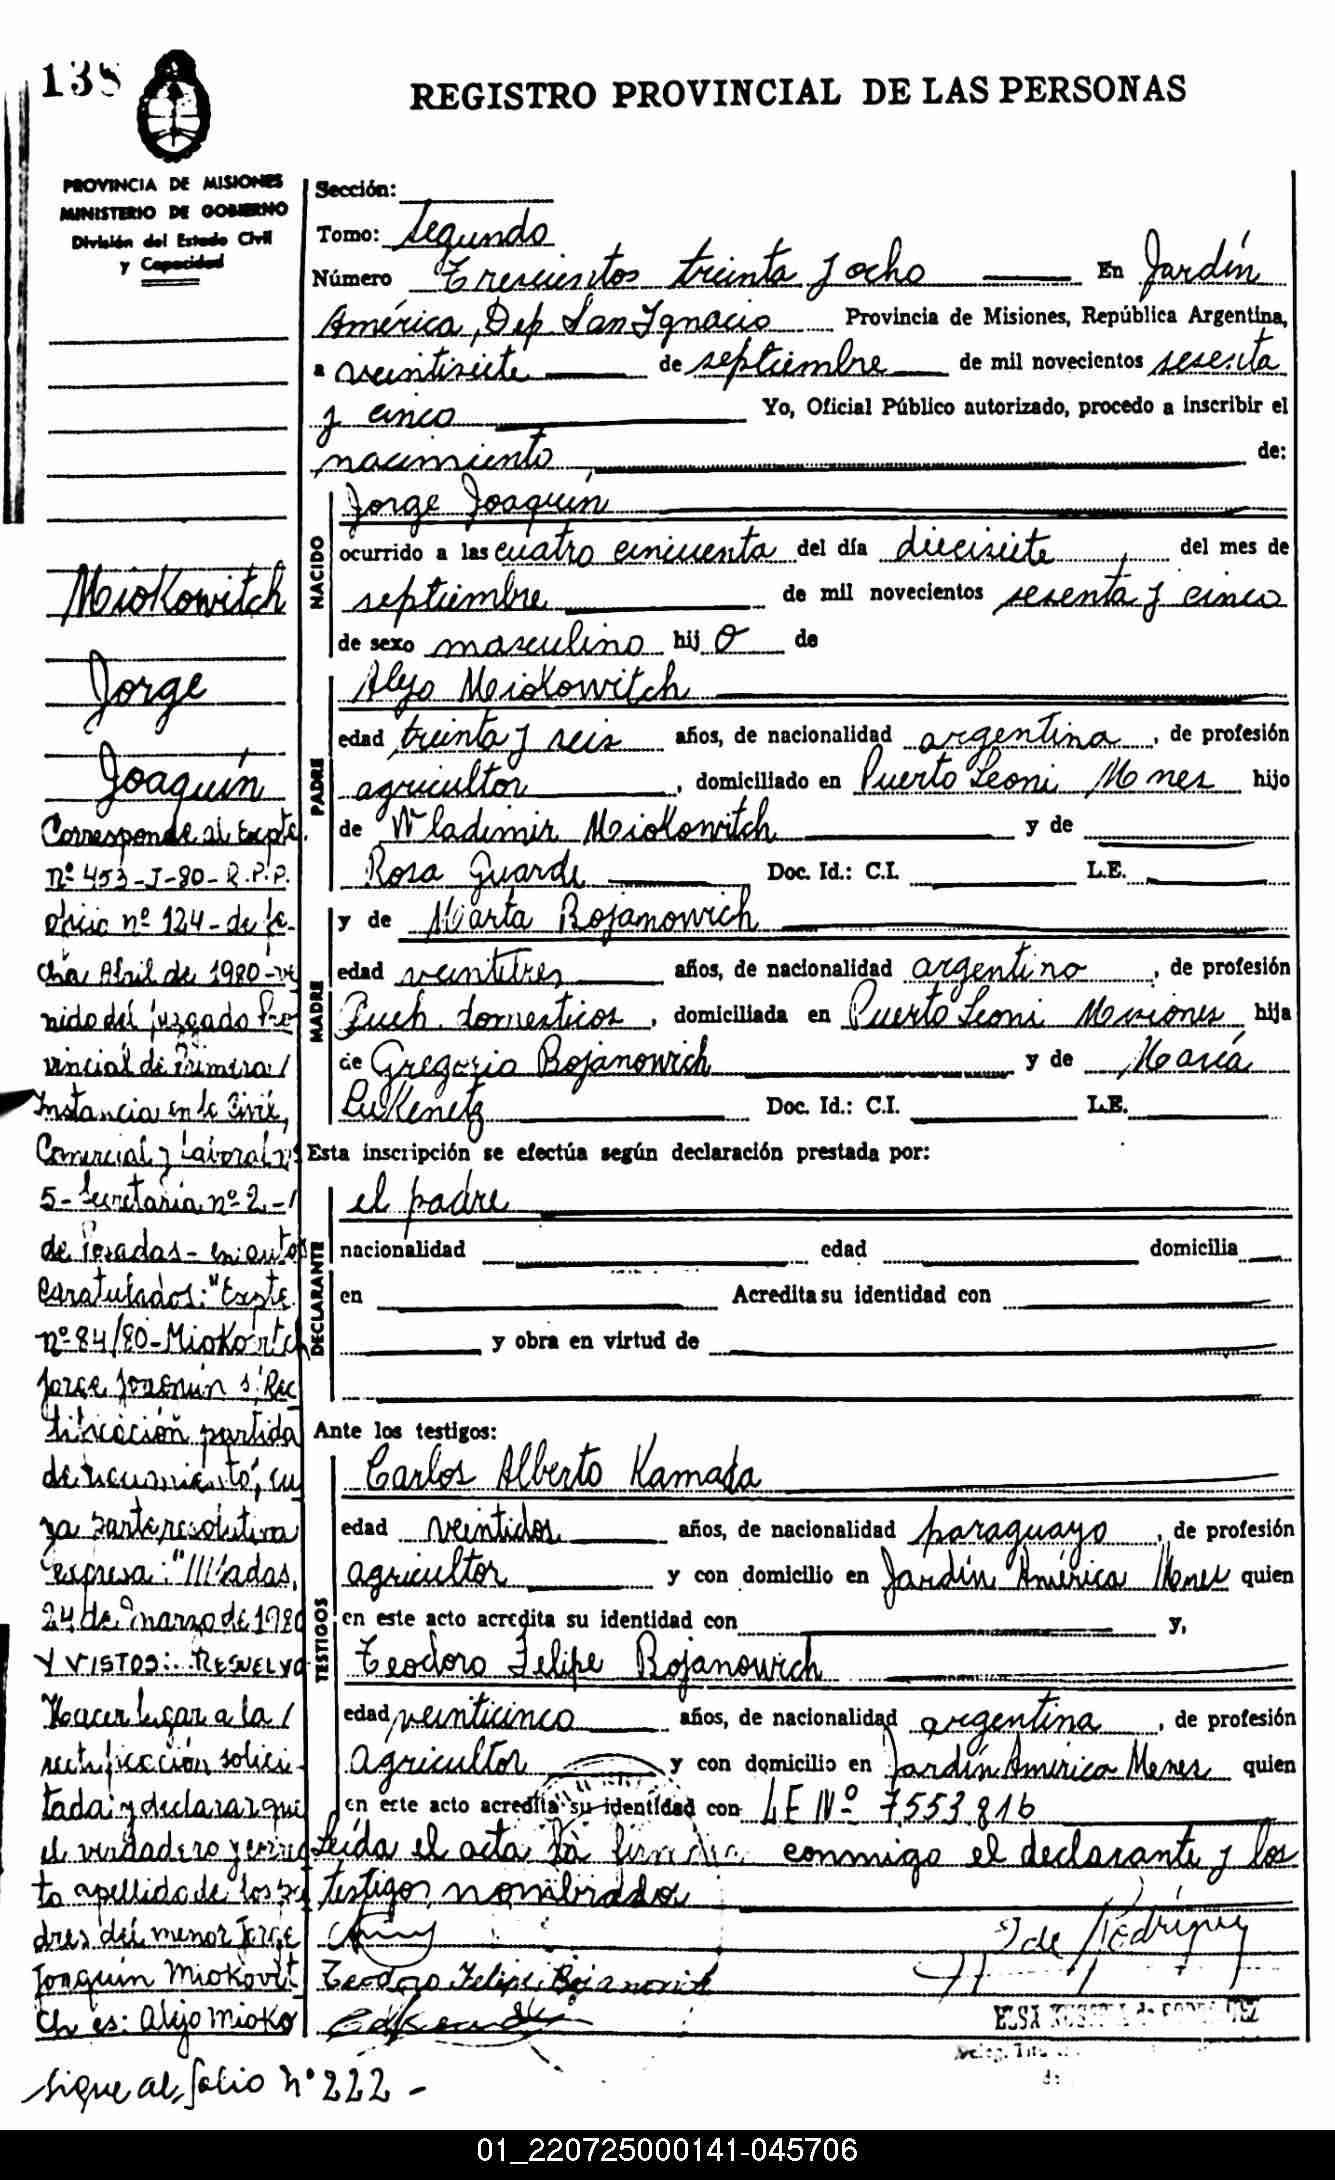 138
REGISTRO PROVINCIAL DE LAS PERSONAS
PROVINCIA DE MISIONES
MINISTERIO DE GOBIERNO
División del Estado Civil
y Capacidad
Miokowitch
Jorge
Joaquín
Corresponde al Expte.
nº 453-J-80-R.P.P.
oficio nº 124-de fe-
cha Abril de 1980-ve
nido del juzgado Pro
vincial de Primera/
Instancia en lo Civil,
Comercial y Laboral nº
5-Secretaría nº 2.-/
de Posadas-en autos
Caratulados: "Expte.
nº 84/80-Miokovitch
Jorge Joaquín s/Rec
tificación partida
de nacimiento", cu
ya parte resolutiva
expresa: "///sadas,
24 de marzo de 1980
Y VISTOS:. RESUELVO
Hacer lugar a la/
rectificación solici-
tada y declarar que
el verdadero y correc
to apellido de los pa
dres del menor Jorge
Joaquín Miokovit
ch es: Alejo Mioko
sigue al folio nº 222-
Sección:
Tomo: Segundo
Número Trescientos treinta y ocho En Jardín
América, Dep San Ignacio Provincia de Misiones, República Argentina,
a veintisiete de septiembre de mil novecientos sesenta
y cinco Yo, Oficial Público autorizado, procedo a inscribir el
nacimiento de:
NACIDO
Jorge Joaquín
ocurrido a las cuatro cincuenta del día diecisiete del mes de
septiembre de mil novecientos sesenta y cinco
de sexo masculino hij o de
PADRE
Alejo Miokowitch
edad treinta y seis años, de nacionalidad argentina, de profesión
agricultor, domiciliado en Puerto Leoni Mnes hijo
de Wladimir Miokowitch y de
Rosa Guardi Doc. Id.: C.I. L.E.
MADRE
y de Marta Bojanowich
edad veintitres años, de nacionalidad argentino, de profesión
Queh. domesticos, domiciliada en Puerto Leoni Misiones hija
de Gregorio Bojanowich y de María
Lukenetz Doc. Id.: C.I. L.E.
Esta inscripción se efectúa según declaración prestada por:
DECLARANTE
el padre
nacionalidad edad domicilia
en Acredita su identidad con
y obra en virtud de
Ante los testigos:
TESTIGOS
Carlos Alberto Kamada
edad veintidos años, de nacionalidad paraguayo, de profesión
agricultor y con domicilio en Jardín América Mnes quien
en este acto acredita su identidad con y,
Teodoro Felipe Bojanowich
edad veinticinco años, de nacionalidad argentina, de profesión
agricultor y con domicilio en Jardín América Mnes quien
en este acto acredita su identidad con LE Nº 7.553.816
Leída el acta la conmigo el declarante y los
testigos nombrados
de Rodríguez
Teodoro Felipe Bojanovich
ELSA
01_220725000141-045706